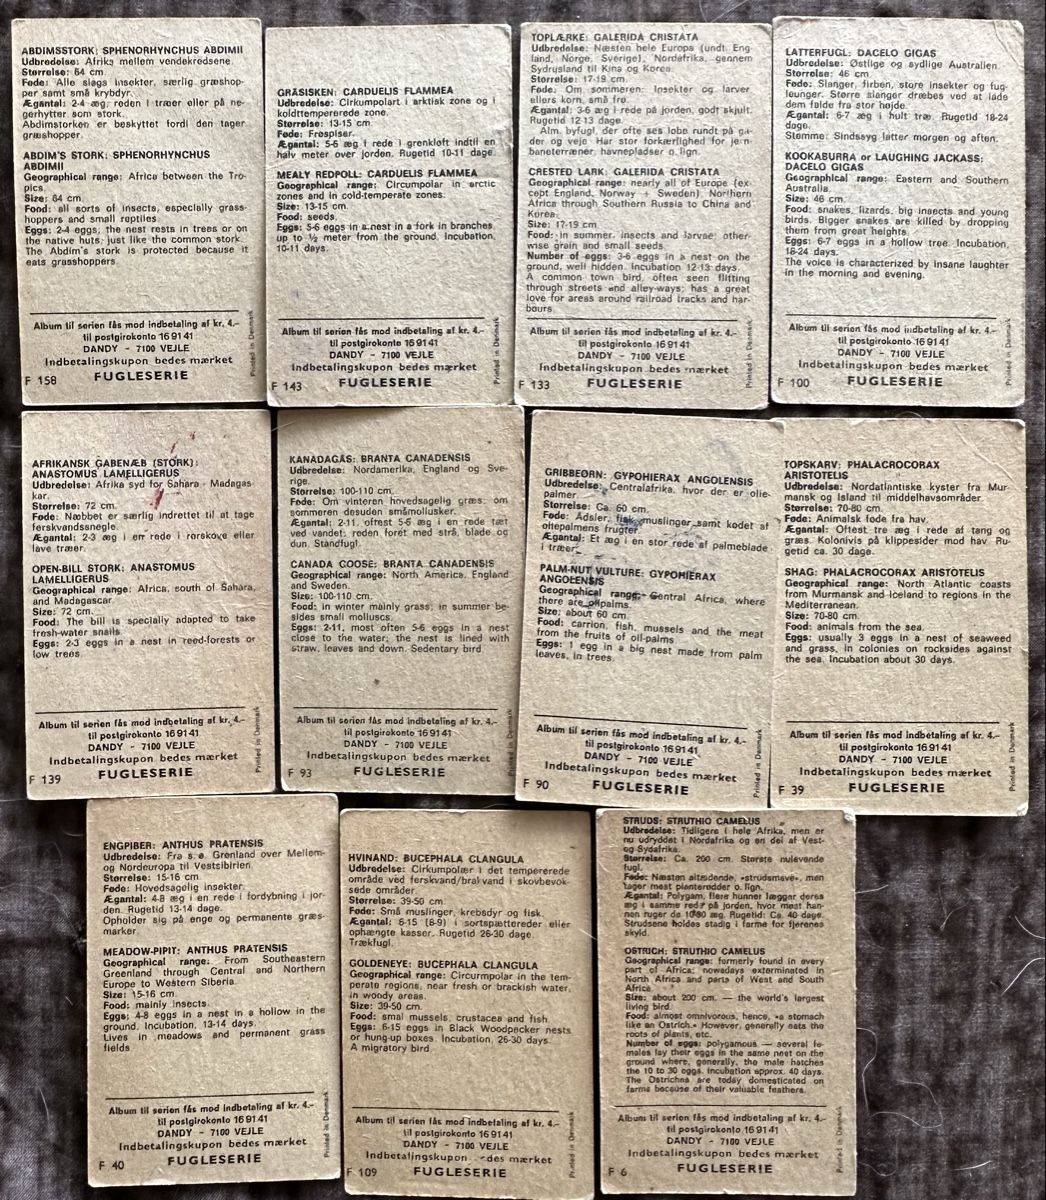 ABDIMSSTORK: SPHENORHYNCHUS ABDIMII
Udbredelse: Afrika mellem vendekredsene.
Størrelse: 64 cm.
Føde: Alle slags insekter, særlig græshop-
per samt små krybdyr.
Ægantal: 2-4 æg, reden i træer eller på ne-
gerhytter som stork.
Abdimstorken er beskyttet fordi den tager
græshopper.
ABDIM'S STORK: SPHENORHYNCHUS
ABDIMII
Geographical range: Africa between the Tro-
pics.
Size: 64 cm.
Food: all sorts of insects, especially grass-
hoppers and small reptiles.
Eggs: 2-4 eggs, the nest rests in trees or on
the native huts, just like the common stork.
The Abdim's stork is protected because it
eats grasshoppers.
Album til serien fås mod indbetaling af kr. 4.-
til postgirokonto 16 91 41
DANDY - 7100 VEJLE
Indbetalingskupon bedes mærket
F 158 FUGLESERIE
Printed in Denmark
GRÅSISKEN: CARDUELIS FLAMMEA
Udbredelse: Cirkumpolart i arktisk zone og i
koldttempererede zone.
Størrelse: 13-15 cm.
Føde: Frøspiser.
Ægantal: 5-6 æg i rede i grenkløft indtil en
halv meter over jorden. Rugetid 10-11 dage.
MEALY REDPOLL: CARDUELIS FLAMMEA
Geographical range: Circumpolar in arctic
zones and in cold-temperate zones.
Size: 13-15 cm.
Food: seeds.
Eggs: 5-6 eggs in a nest in a fork in branches
up to ½ meter from the ground. Incubation,
10-11 days.
Album til serien fås mod indbetaling af kr. 4.-
til postgirokonto 16 91 41
DANDY - 7100 VEJLE
Indbetalingskupon bedes mærket
F 143 FUGLESERIE
Printed in Denmark
TOPLÆRKE: GALERIDA CRISTATA
Udbredelse: Næsten hele Europa (undt. Eng-
land, Norge, Sverige), Nordafrika, gennem
Sydrusland til Kina og Korea.
Størrelse: 17-19 cm.
Føde: Om sommeren: insekter og larver
ellers korn, små frø.
Ægantal: 3-6 æg i rede på jorden, godt skjult.
Rugetid 12-13 dage.
Alm. byfugl, der ofte ses løbe rundt på ga-
der og veje. Har stor forkærlighed for jern-
baneterræner, havnepladser o. lign.
CRESTED LARK: GALERIDA CRISTATA
Geographical range: nearly all of Europe (ex-
cept England, Norway + Sweden), Northern
Africa through Southern Russia to China and
Korea.
Size: 17-19 cm.
Food: in summer, insects and larvae, other-
wise grain and small seeds.
Number of eggs: 3-6 eggs in a nest on the
ground, well hidden. Incubation 12-13 days.
A common town bird, often seen flitting
through streets and alley-ways; has a great
love for areas around railroad tracks and har-
bours.
Album til serien fås mod indbetaling af kr. 4.-
til postgirokonto 16 91 41
DANDY - 7100 VEJLE
Indbetalingskupon bedes mærket
F 133 FUGLESERIE
Printed in Denmark
LATTERFUGL: DACELO GIGAS
Udbredelse: Østlige og sydlige Australien.
Størrelse: 46 cm.
Føde: Slanger, firben, store insekter og fug-
leunger. Større slanger dræbes ved at lade
dem falde fra stor højde.
Ægantal: 6-7 æg i hult træ. Rugetid 18-24
dage.
Stemme: Sindssyg latter morgen og aften.
KOOKABURRA or LAUGHING JACKASS:
DACELO GIGAS
Geographical range: Eastern and Southern
Australia.
Size: 46 cm.
Food: snakes, lizards, big insects and young
birds. Bigger snakes are killed by dropping
them from great heights.
Eggs: 6-7 eggs in a hollow tree. Incubation,
18-24 days.
The voice is characterized by insane laughter
in the morning and evening.
Album til serien fås mod indbetaling af kr. 4.-
til postgirokonto 16 91 41
DANDY - 7100 VEJLE
Indbetalingskupon bedes mærket
F 100 FUGLESERIE
Printed in Denmark
AFRIKANSK GABENÆB (STORK):
ANASTOMUS LAMELLIGERUS
Udbredelse: Afrika syd for Sahara - Madagas-
kar.
Størrelse: 72 cm.
Føde: Næbbet er særlig indrettet til at tage
ferskvandssnegle.
Ægantal: 2-3 æg i en rede i rørskove eller
lave træer.
OPEN-BILL STORK: ANASTOMUS
LAMELLIGERUS
Geographical range: Africa, south of Sahara,
and Madagascar.
Size: 72 cm.
Food: The bill is specially adapted to take
fresh-water snails.
Eggs: 2-3 eggs in a nest in reed-forests or
low trees.
Album til serien fås mod indbetaling af kr. 4.-
til postgirokonto 16 91 41
DANDY - 7100 VEJLE
Indbetalingskupon bedes mærket
F 139 FUGLESERIE
Printed in Denmark
KANADAGÅS: BRANTA CANADENSIS
Udbredelse: Nordamerika, England og Sve-
rige.
Størrelse: 100-110 cm.
Føde: Om vinteren hovedsagelig græs; om
sommeren desuden småmollusker.
Ægantal: 2-11, oftest 5-6 æg i en rede tæt
ved vandet; reden foret med strå, blade og
dun. Standfugl.
CANADA GOOSE: BRANTA CANADENSIS
Geographical range: North America, England
and Sweden.
Size: 100-110 cm.
Food: in winter mainly grass; in summer be-
sides small molluscs.
Eggs: 2-11, most often 5-6 eggs in a nest
close to the water; the nest is lined with
straw, leaves and down. Sedentary bird.
Album til serien fås mod indbetaling af kr. 4.-
til postgirokonto 16 91 41
DANDY - 7100 VEJLE
Indbetalingskupon bedes mærket
F 93 FUGLESERIE
Printed in Denmark
GRIBBEØRN: GYPOHIERAX ANGOLENSIS
Udbredelse: Centralafrika, hvor der er olie-
palmer.
Størrelse: Ca. 60 cm.
Føde: Ådsler, fisk, muslinger samt kødet af
oliepalmens frugter.
Ægantal: Et æg i en stor rede af palmeblade
i træer.
PALM-NUT VULTURE: GYPOHIERAX
ANGOLENSIS
Geographical range: Central Africa, where
there are oilpalms.
Size: about 60 cm.
Food: carrion, fish, mussels and the meat
from the fruits of oil-palms.
Eggs: 1 egg in a big nest made from palm
leaves, in trees.
Album til serien fås mod indbetaling af kr. 4.-
til postgirokonto 16 91 41
DANDY - 7100 VEJLE
Indbetalingskupon bedes mærket
F 90 FUGLESERIE
Printed in Denmark
TOPSKARV: PHALACROCORAX
ARISTOTELIS
Udbredelse: Nordatlantiske kyster fra Mur-
mansk og Island til middelhavsområder.
Størrelse: 70-80 cm.
Føde: Animalsk føde fra hav.
Ægantal: Oftest tre æg i rede af tang og
græs. Kolonivis på klippesider mod hav. Ru-
getid ca. 30 dage.
SHAG: PHALACROCORAX ARISTOTELIS
Geographical range: North Atlantic coasts
from Murmansk and Iceland to regions in the
Mediterranean.
Size: 70-80 cm.
Food: animals from the sea.
Eggs: usually 3 eggs in a nest of seaweed
and grass, in colonies on rocksides against
the sea. Incubation about 30 days.
Album til serien fås mod indbetaling af kr. 4.-
til postgirokonto 16 91 41
DANDY - 7100 VEJLE
Indbetalingskupon bedes mærket
F 39 FUGLESERIE
Printed in Denmark
ENGPIBER: ANTHUS PRATENSIS
Udbredelse: Fra s. ø. Grønland over Mellem-
og Nordeuropa til Vestsibirien.
Størrelse: 15-16 cm.
Føde: Hovedsagelig insekter.
Ægantal: 4-8 æg i en rede i fordybning i jor-
den. Rugetid 13-14 dage.
Opholder sig på enge og permanente græs-
marker.
MEADOW-PIPIT: ANTHUS PRATENSIS
Geographical range: From Southeastern
Greenland through Central and Northern
Europe to Western Siberia.
Size: 15-16 cm.
Food: mainly insects.
Eggs: 4-8 eggs in a nest in a hollow in the
ground. Incubation, 13-14 days.
Lives in meadows and permanent grass
fields.
Album til serien fås mod indbetaling af kr. 4.-
til postgirokonto 16 91 41
DANDY - 7100 VEJLE
Indbetalingskupon bedes mærket
F 40 FUGLESERIE
Printed in Denmark
HVINAND: BUCEPHALA CLANGULA
Udbredelse: Cirkumpolær i det tempererede
område ved ferskvand/brakvand i skovbevok-
sede områder.
Størrelse: 39-50 cm.
Føde: Små muslinger, krebsdyr og fisk.
Ægantal: 6-15 (8-9) i sortspættereder eller
ophængte kasser. Rugetid 26-30 dage.
Trækfugl.
GOLDENEYE: BUCEPHALA CLANGULA
Geographical range: Circumpolar in the tem-
perate regions, near fresh or brackish water,
in wondy areas.
Size: 39-50 cm.
Food: smal mussels, crustacea and fish.
Eggs: 6-15 eggs in Black Woodpecker nests
or hung-up boxes. Incubation, 26-30 days.
A migratory bird.
Album til serien fås mod indbetaling af kr. 4.-
til postgirokonto 16 91 41
DANDY - 7100 VEJLE
Indbetalingskupon bedes mærket
F 109 FUGLESERIE
Printed in Denmark
STRUDS: STRUTHIO CAMELUS
Udbredelse: Tidligere i hele Afrika, men er
nu udryddet i Nordafrika og en del af Vest-
og Sydafrika.
Størrelse: Ca. 200 cm. Største nulevende
fugl.
Føde: Næsten altædende, »strudsmave«, men
tager mest planterødder o. lign.
Ægantal: Polygam, flere hunner lægger deres
æg i samme rede på jorden, hvor mest han-
nen ruger de 10-30 æg. Rugetid: Ca. 40 dage.
Strudsene holdes stadig i farme for fjerenes
skyld.
OSTRICH: STRUTHIO CAMELUS
Geographical range: formerly found in every
part of Africa; nowadays exterminated in
North Africa and parts of West and South
Africa.
Size: about 200 cm. — the world's largest
living bird.
Food: almost omnivorous, hence, »a stomach
like an Ostrich.« However, generally eats the
roots of plants, etc.
Number of eggs: polygamous — several fe-
males lay their eggs in the same nest on the
ground where, generally, the male hatches
the 10 to 30 eggs. Incubation approx. 40 days.
The Ostriches are today domesticated on
farms because of their valuable feathers.
Album til serien fås mod indbetaling af kr. 4.-
til postgirokonto 16 91 41
DANDY - 7100 VEJLE
Indbetalingskupon bedes mærket
F 6 FUGLESERIE
Printed in Denmark